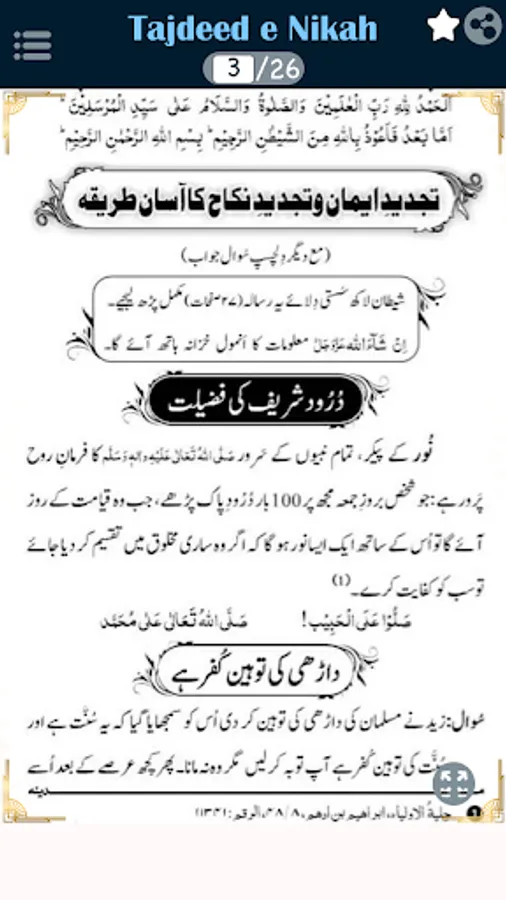 Tajdeed e Nikah
3 /26
اَلْحَمْدُ لِلّٰهِ رَبِّ الْعٰلَمِيْنَ وَالصَّلٰوةُ وَالسَّلَامُ عَلٰى سَيِّدِ الْمُرْسَلِيْنَ ؕ
اَمَّا بَعْدُ فَاَعُوْذُ بِاللّٰهِ مِنَ الشَّيْطٰنِ الرَّجِيْمِ ؕ بِسْمِ اللّٰهِ الرَّحْمٰنِ الرَّحِيْمِ ؕ
تجدیدِ ایمان و تجدیدِ نکاح کا آسان طریقہ
(مع دیگر دِلچسپ سُوال جواب)
شیطان لاکھ سُستی دِلائے یہ رسالہ (۲۷ صفحات) مکمل پڑھ لیجیے۔
اِنْ شَآءَ اللّٰه عَزَّوَجَلَّ معلومات کا اَنمول خزانہ ہاتھ آئے گا۔
دُرُود شریف کی فضیلت
نُور کے پیکر، تمام نبیوں کے سَرور صَلَّى اللّٰهُ تَعَالٰى عَلَيْهِ وَاٰلِهٖ وَسَلَّم کا فرمانِ روح
پَرور ہے: جو شخص بروزِ جمعہ مجھ پر 100 بار دُرُودِ پاک پڑھے، جب وہ قیامت کے روز
آئے گا تو اُس کے ساتھ ایک ایسا نور ہو گا کہ اگر وہ ساری مخلوق میں تقسیم کر دیا جائے
تو سب کو کفایت کرے۔ (1)
صَلُّوْا عَلَى الْحَبِيْب! صَلَّى اللّٰهُ تَعَالٰى عَلٰى مُحَمَّد
داڑھی کی توہین کُفر ہے
سُوال: زید نے مسلمان کی داڑھی کی توہین کر دی اُس کو سمجھایا گیا کہ یہ سُنَّت ہے اور
سُنَّت کی توہین کُفر ہے آپ توبہ کر لیں مگر وہ نہ مانا۔ پھر کچھ عرصے کے بعد اُسے
دینہ
1 حلیۃُ الاولیاء، ابراھیم بن ادھم، ۸/۴۸، الرقم: ۱۱۳۴۱)